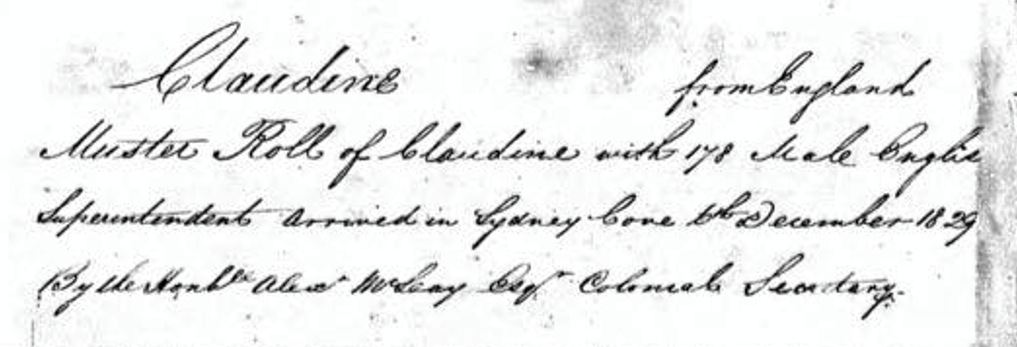 Claudine from England
Muster Roll of Claudine with 178 Male Englis
Superintendent arrived in Sydney Cove 6th December 1829
By the Honble Alexr McLeay Esqr Colonial Secretary.